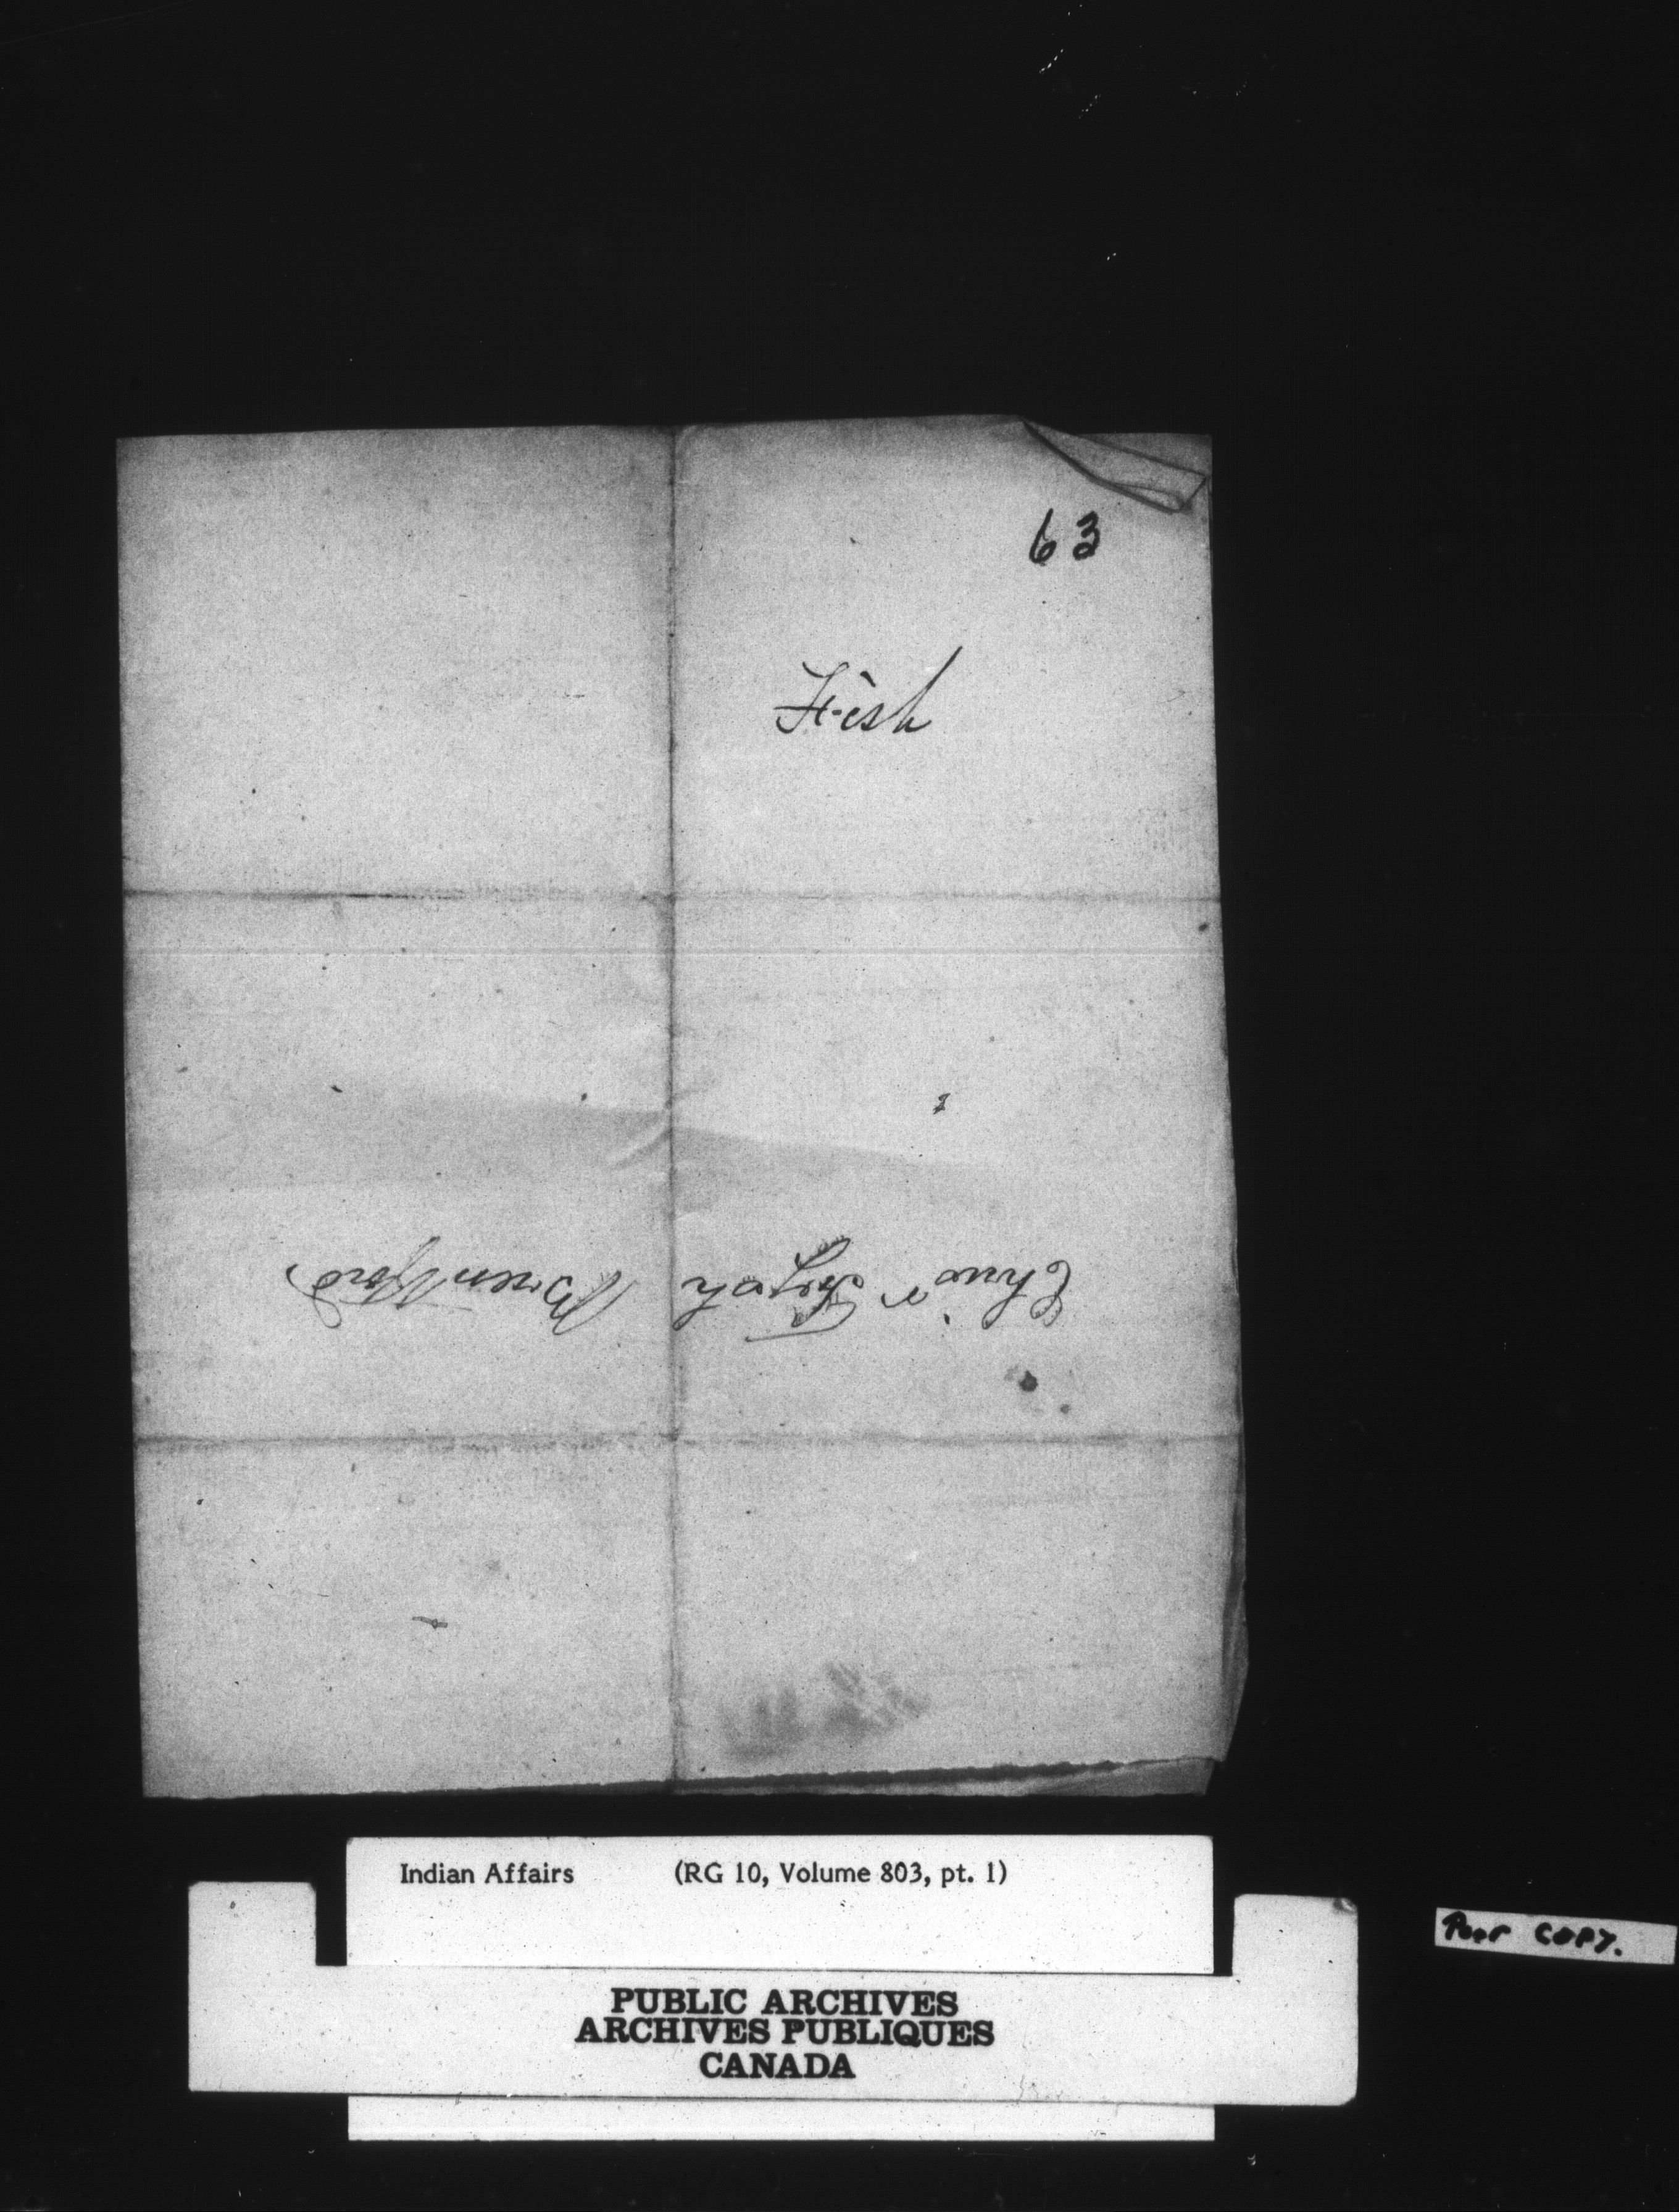 63
Fish
Indian Affairs (RG 10, Volume 803, pt. 1)
PUBLIC ARCHIVES
ARCHIVES PUBLIQUES
CANADA
Poor COPY.